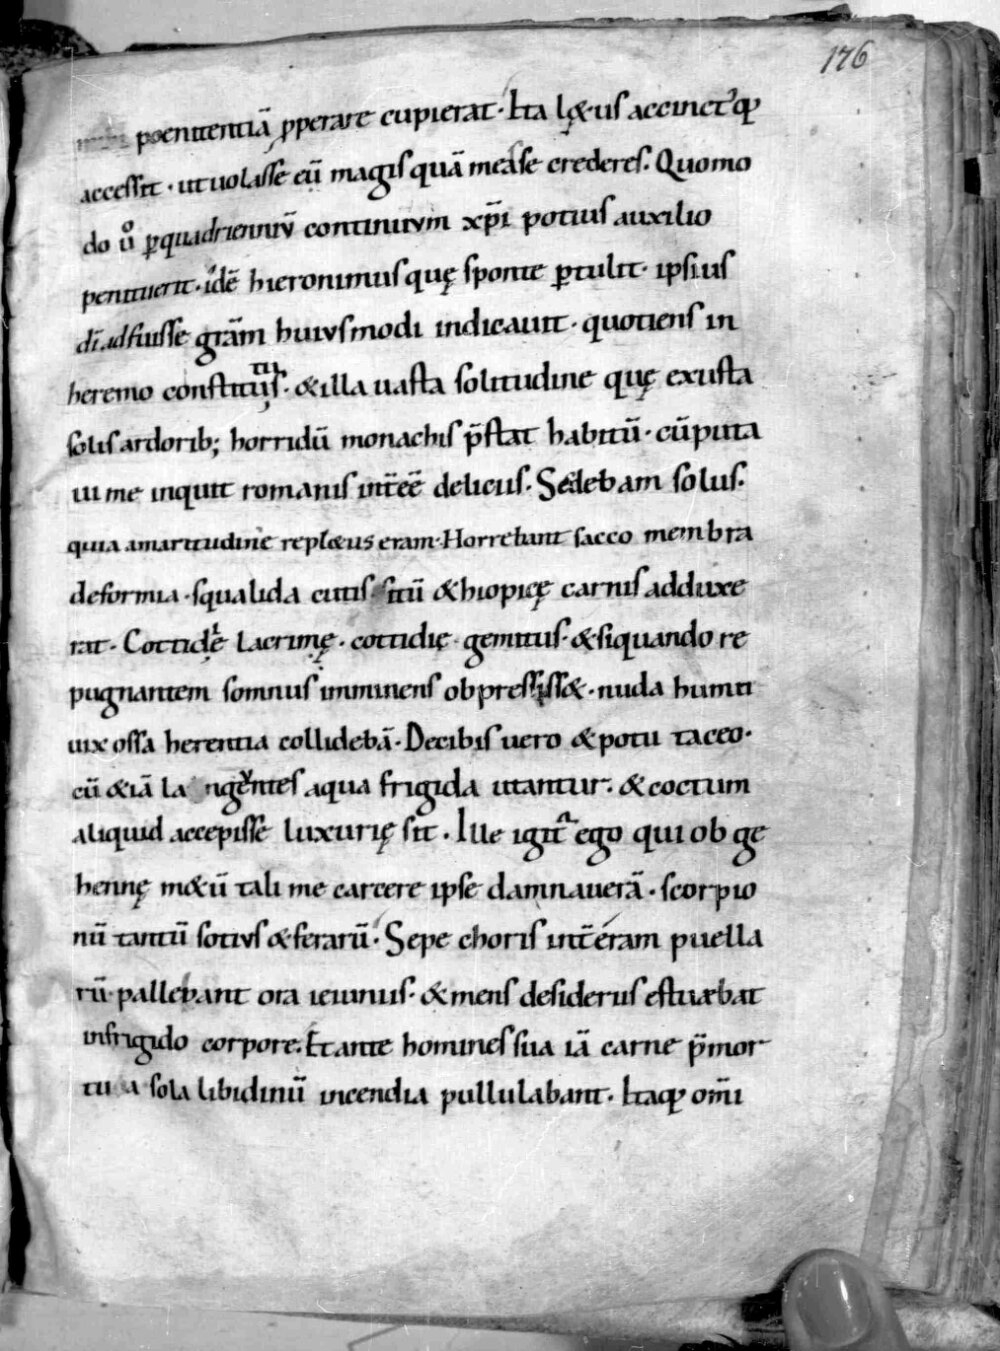 176
poenitentiā ꝓperare cupierat· Ita lę&us accinct'q;
accessit · ut uolasse eū magis quā measse crederes. Quomo
do ů ꝑquadrienniū continuum xp̄i potius auxilio
penituerit · idē hieronimus quę sponte ꝑtulit· ipsius
dī adfuisse grām huiusmodi indicauit · quotiens in
heremo constitutus· & illa uasta solitudine quę exusta
solis ardorib; horridū monachis p̄stat habitū· cū puta
ui me inquit romanis int̄eē deliciis· Sedebam solus.
quia amaritudine repl&us eram· Horrebant sacco membra
deformia · squalida cutis situ̅ &hiopicę carnis adduxe
rat· Cottidię lacrimę · cottidię gemitus· & siquando re
pugnantem somnus imminens obpressiss& · nuda humu
uix ossa herentia collidebā· De cibis uero & potu taceo·
cū & iā languentes aqua frigida utantur· & coctum
aliquid accepisse luxurię sit · Ille igit ego qui ob ge
hennę m&ū tali me carcere ipse damnauerā · scorpio
nū tantū sotius & ferarū· Sepe choris int̄eram puella
rū· pallebant ora ieiuniis· & mens desideriis estuabat
in frigido corpore. Et ante hominē sua iā carne p̄mor
tua sola libidinū incendia pullulabant· Itaq; om̄i